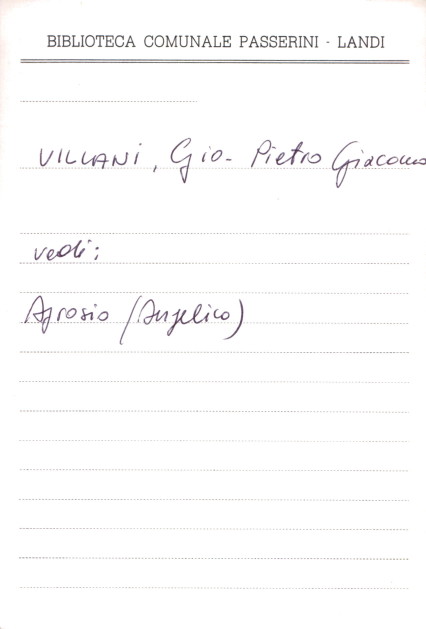 BIBLIOTECA COMUNALE PASSERINI - LANDI
VILLANI, Gio- Pietro Giacomo
vedi:
Aprosio (Angelico)